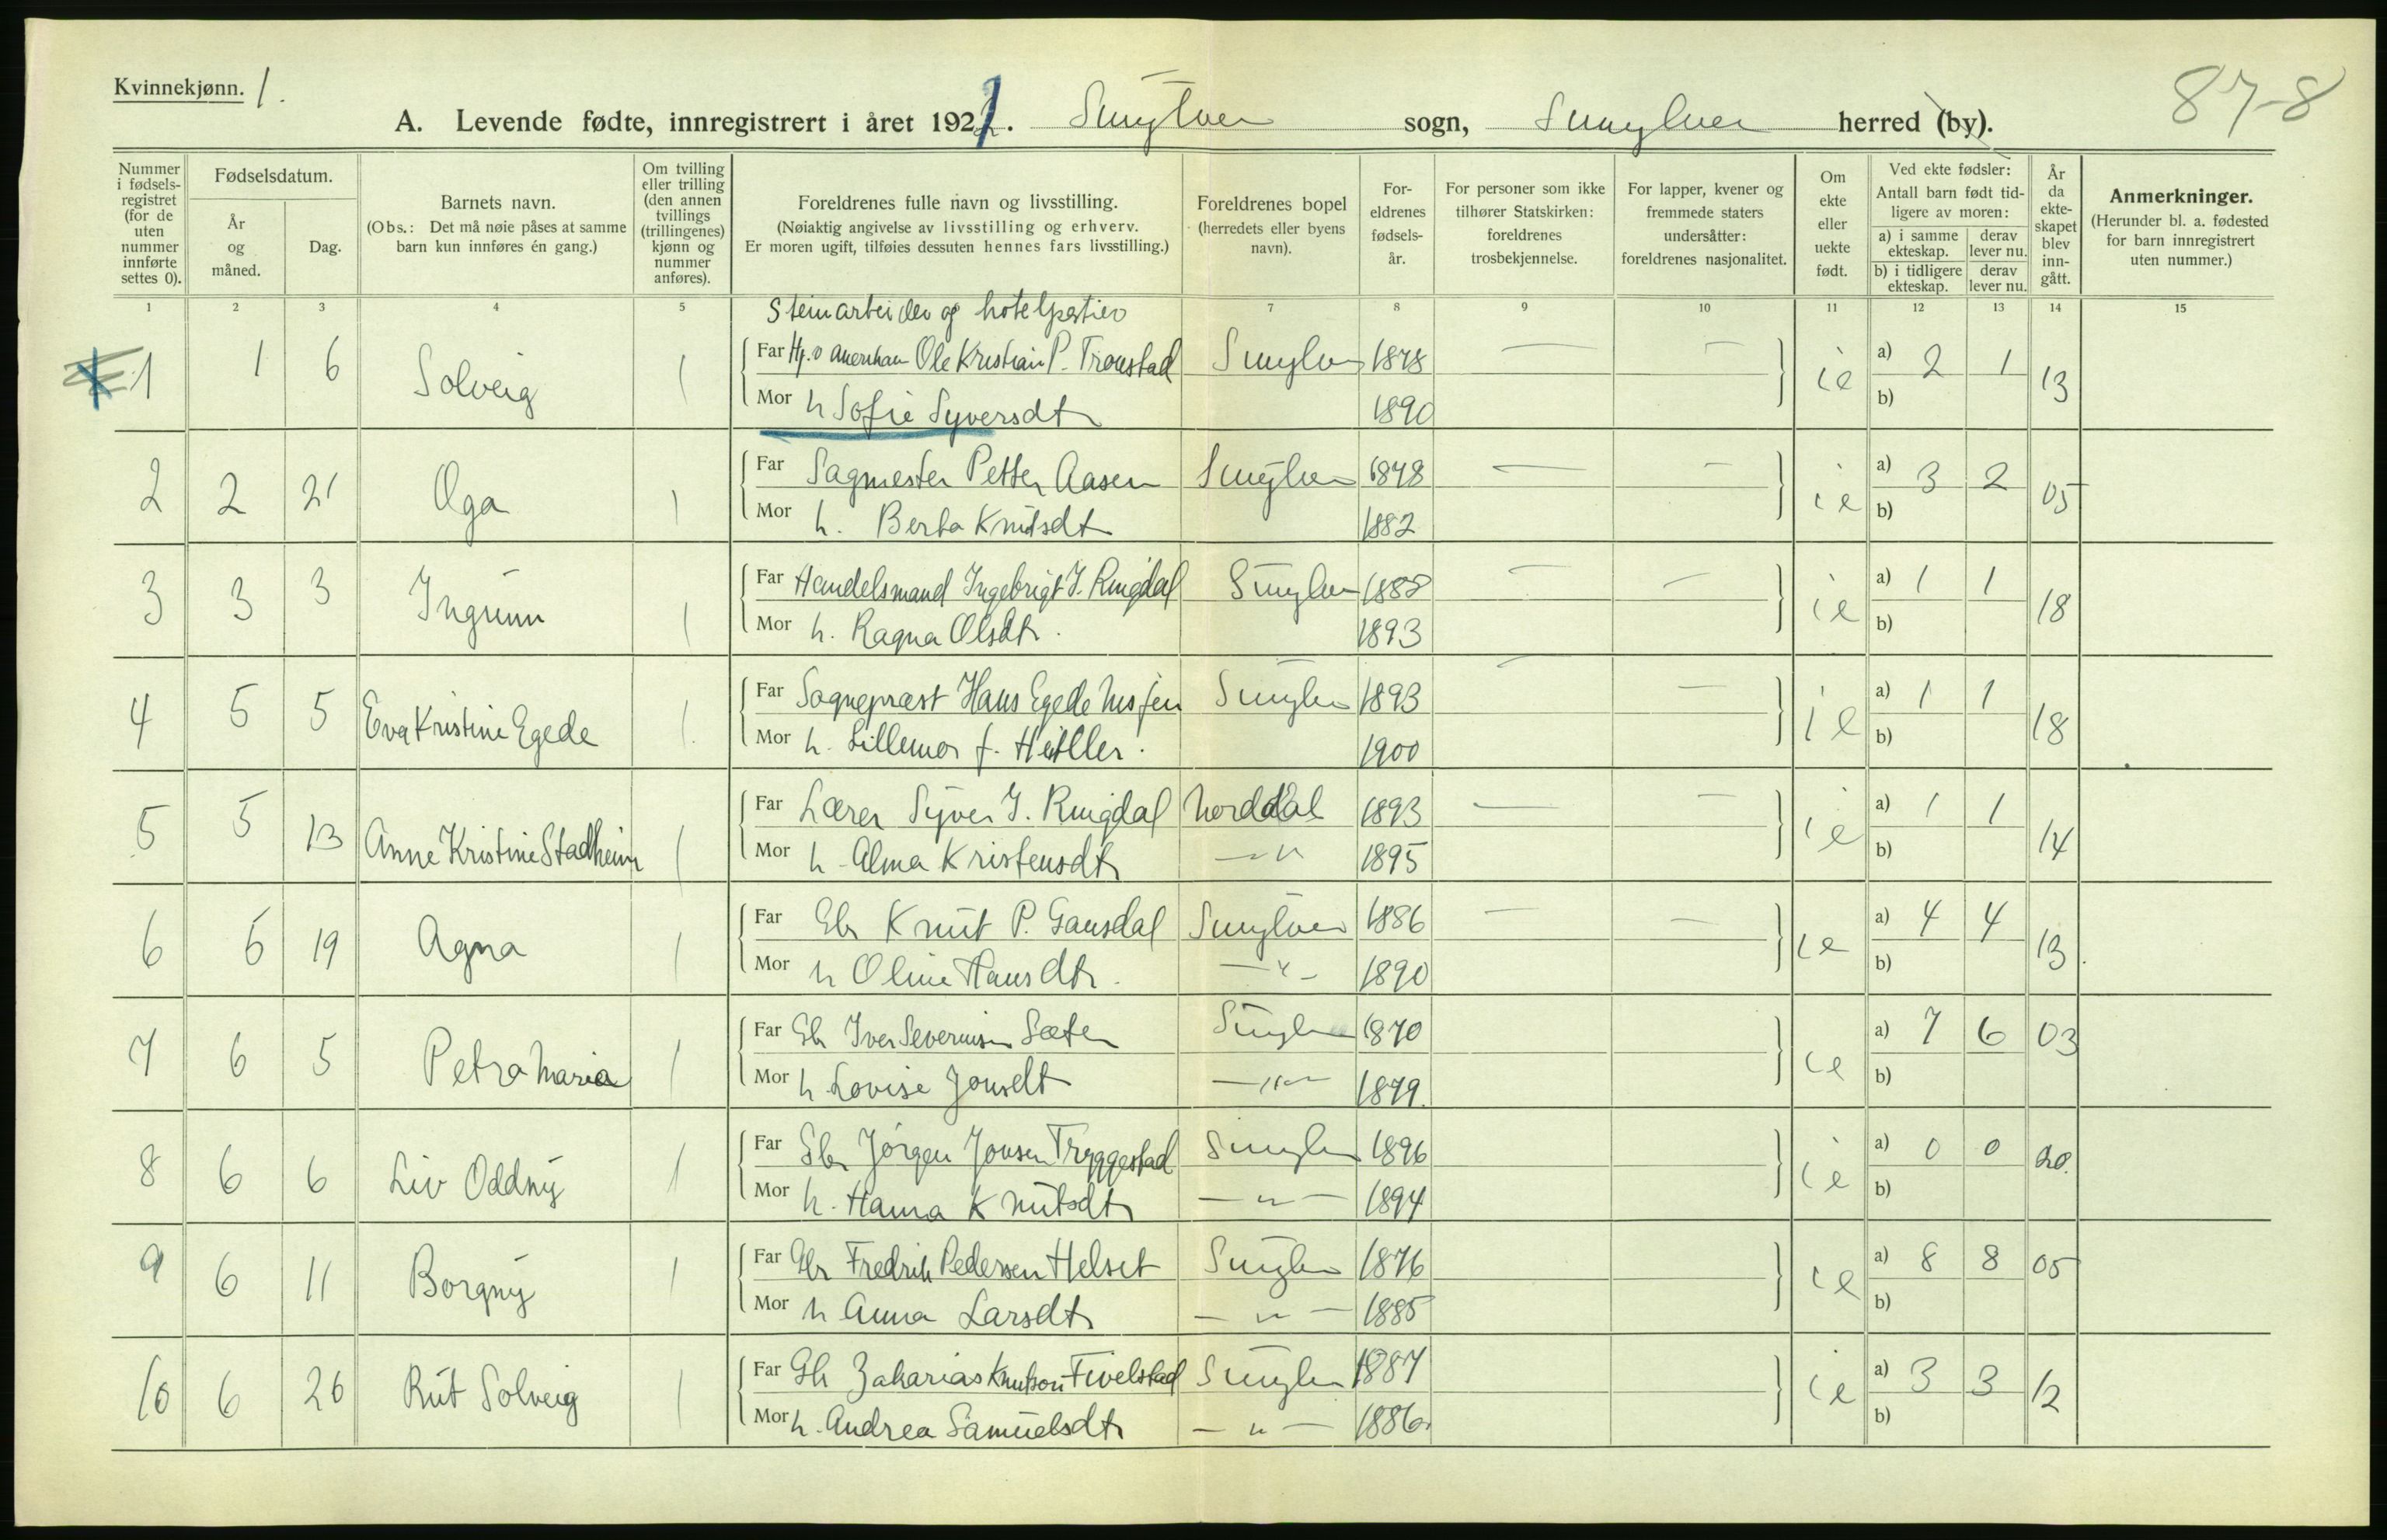 Kvinnekjønn. 1.
87-8
A. Levende fødte, innregistrert i året 1921. Sunylven sogn, Sunylven herred (by).
Nummer i fødsels-registret (for de uten nummer innførte settes 0).
Fødselsdatum.
År og måned.
Dag.
Barnets navn.
(Obs.: Det må nøie påses at samme barn kun innføres én gang.)
Om tvilling eller trilling (den annen tvillings (trillingenes) kjønn og nummer anføres).
Foreldrenes fulle navn og livsstilling.
(Nøiaktig angivelse av livsstilling og erhverv.
Er moren ugift, tilføies dessuten hennes fars livsstilling.)
Foreldrenes bopel (herredets eller byens navn).
For-eldrenes fødsels-år.
For personer som ikke tilhører Statskirken: foreldrenes trosbekjennelse.
For lapper, kvener og fremmede staters undersåtter: foreldrenes nasjonalitet.
Om ekte eller uekte født.
Ved ekte fødsler:
Antall barn født tid-ligere av moren:
a) i samme ekteskap.
derav lever nu.
b) i tidligere ekteskap.
derav lever nu.
År da ekte-skapet blev inn-gått.
Anmerkninger.
(Herunder bl. a. fødested for barn innregistrert uten nummer.)
1 2 3 4 5 7 8 9 10 11 12 13 14 15
Steinarbeider og hotelportier
1 1 6 Solveig 1 Far Ole Kristian P. Tronstad Sunylven 1878 — — ie a) 2 1 13
Mor h Sofie Syversdt 1890 b)
2 2 21 Oga 1 Far Sagmester Petter Aasen Sunylven 1878 — — ie a) 3 2 05
Mor h. Berta Knutsdt 1882 b)
3 3 3 Ingunn 1 Far Handelsmand Ingebrigt J. Ringdal Sunylven 1882 — — ie a) 1 1 18
Mor h. Ragna Olsdt. 1893 b)
4 5 5 Eva Kristine Egede 1 Far Sogneprest Hans Egede Nissen Sunylven 1893 — — ie a) 1 1 18
Mor h. Lillemor f. 1900 b)
5 5 13 Anne Kristine Stadheim 1 Far Lærer Syver J. Ringdal Norddal 1893 — — ie a) 1 1 14
Mor h. Alma Kristensdt —"— 1895 b)
6 5 19 Agna 1 Far Gbr Knut P. Gausdal Sunylven 1886 — — ie a) 4 4 13
Mor h Oline Hansdt. —"— 1890 b)
7 6 5 Petra Maria 1 Far Gbr Iver Severinsen Sæter Sunylven 1870 ie a) 7 6 03
Mor h. Lovise Jonsdt —"— 1879. b)
8 6 6 Liv Oddny 1 Far Gbr Jørgen Jonsen Tryggestad Sunylven 1896 ie a) 0 0 20.
Mor h. Hanna Knutsdt —"— 1894 b)
9 6 11 Borgny 1 Far Gbr Fredrik Pedersen Helset Sunylven 1876 ie a) 8 8 05
Mor h Anna Larsdt —"— 1885 b)
10 6 26 Rut Solveig 1 Far Gbr Zakarias Knutson Fivelstad Sunylven 1887 ie a) 3 3 12
Mor h. Andrea Samuelsdt —"— 1886. b)